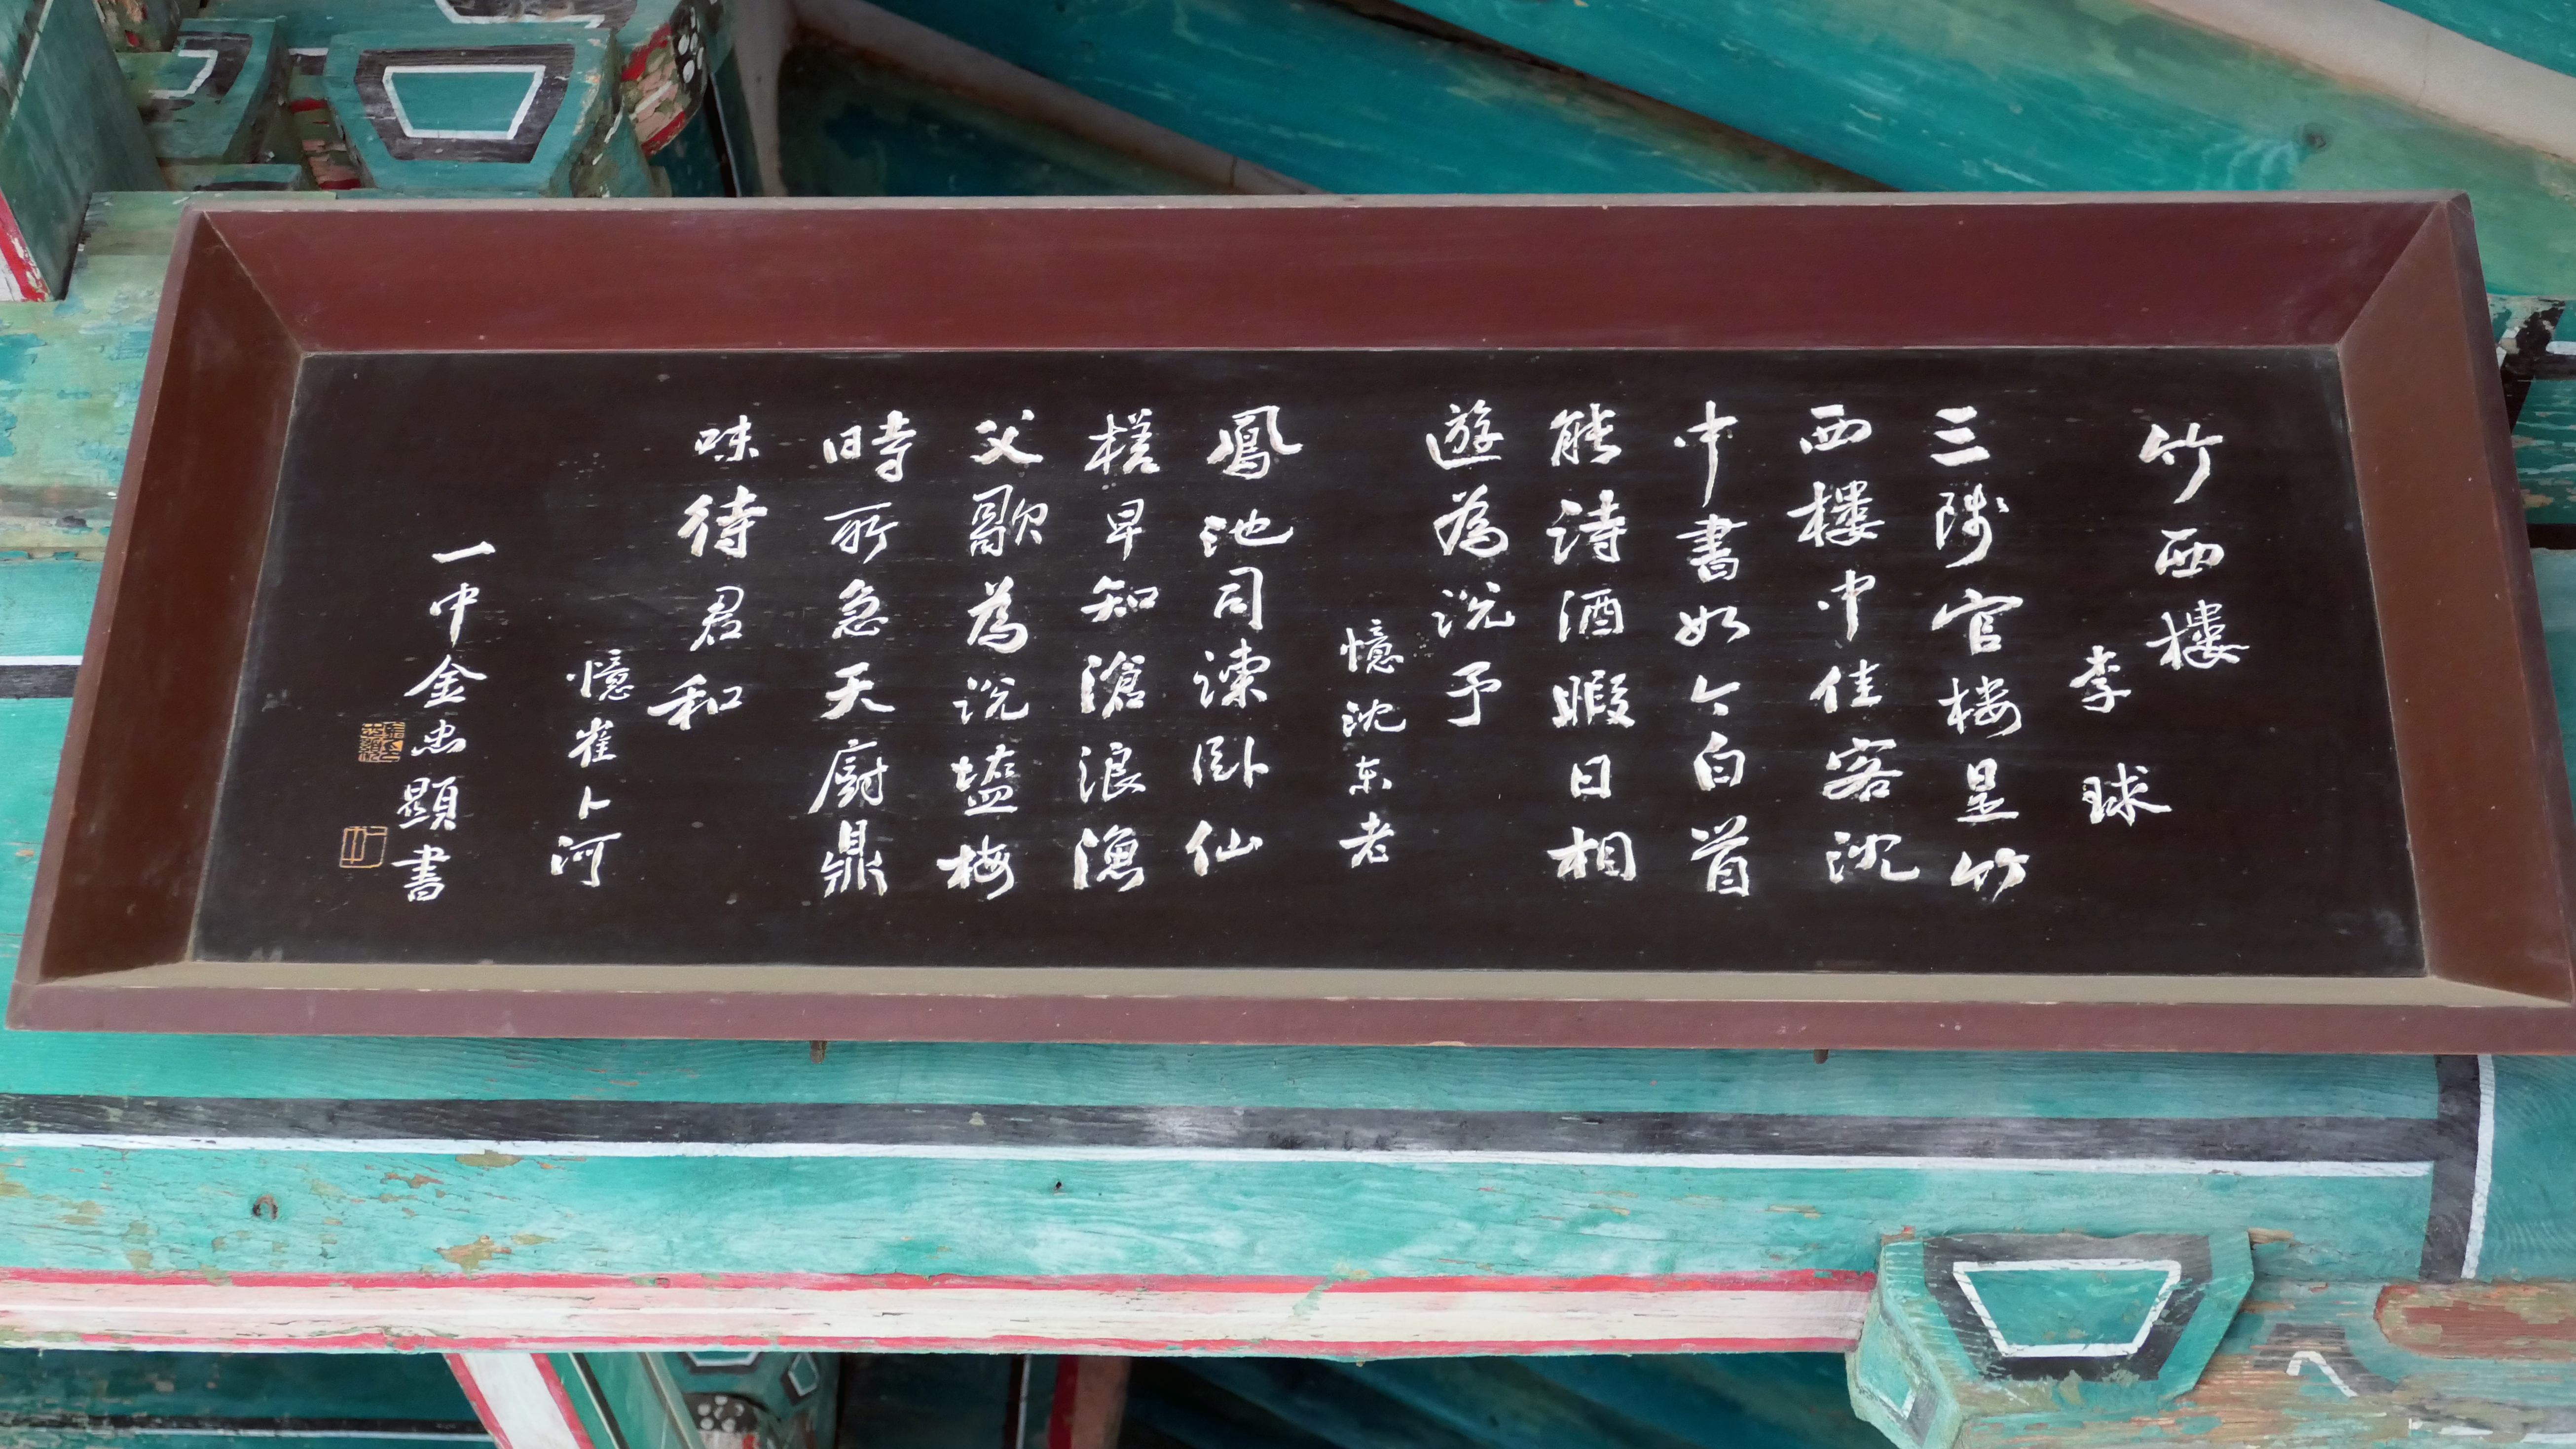 竹西樓
李球
三陟官楼是竹
西樓中佳客沈
中書如今白首
能詩酒暇日相
遊為说予
憶沈东老
鳳池司諫卧仙
槎早知滄浪漁
父歌為说塩梅
時所急天廚鼎
味待君和
憶崔卜河
一中金忠顯書